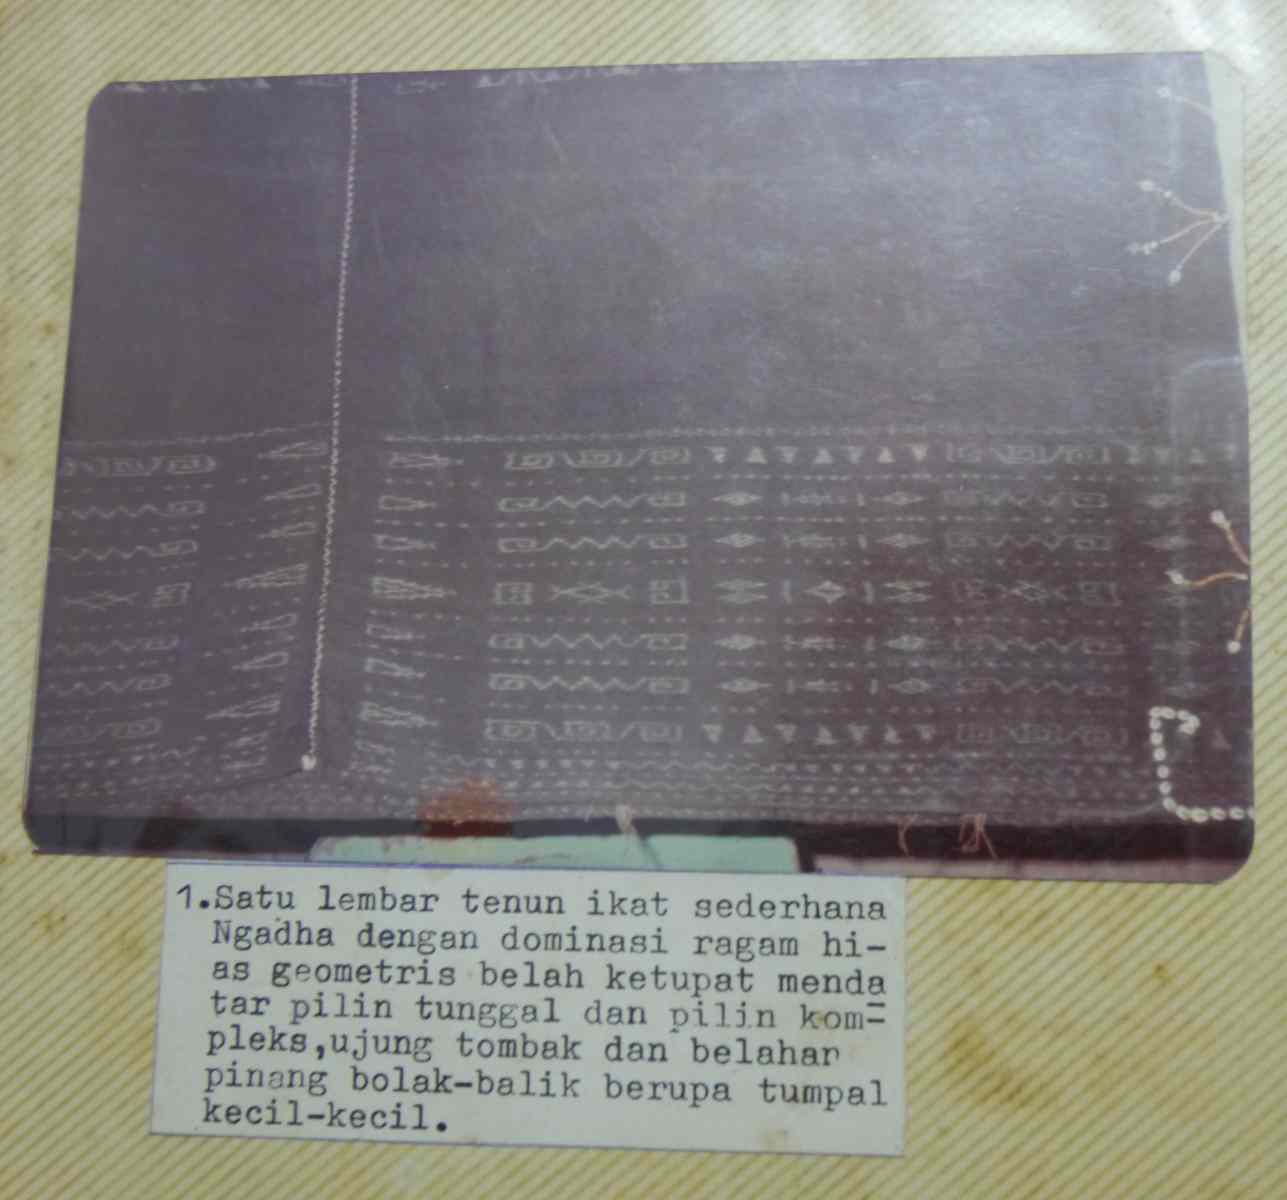 1.Satu lembar tenun ikat sederhana
Ngadha dengan dominasi ragam hi-
as geometris belah ketupat menda
tar pilin tunggal dan pilin kom-
pleks,ujung tombak dan belahan
pinang bolak-balik berupa tumpal
kecil-kecil.